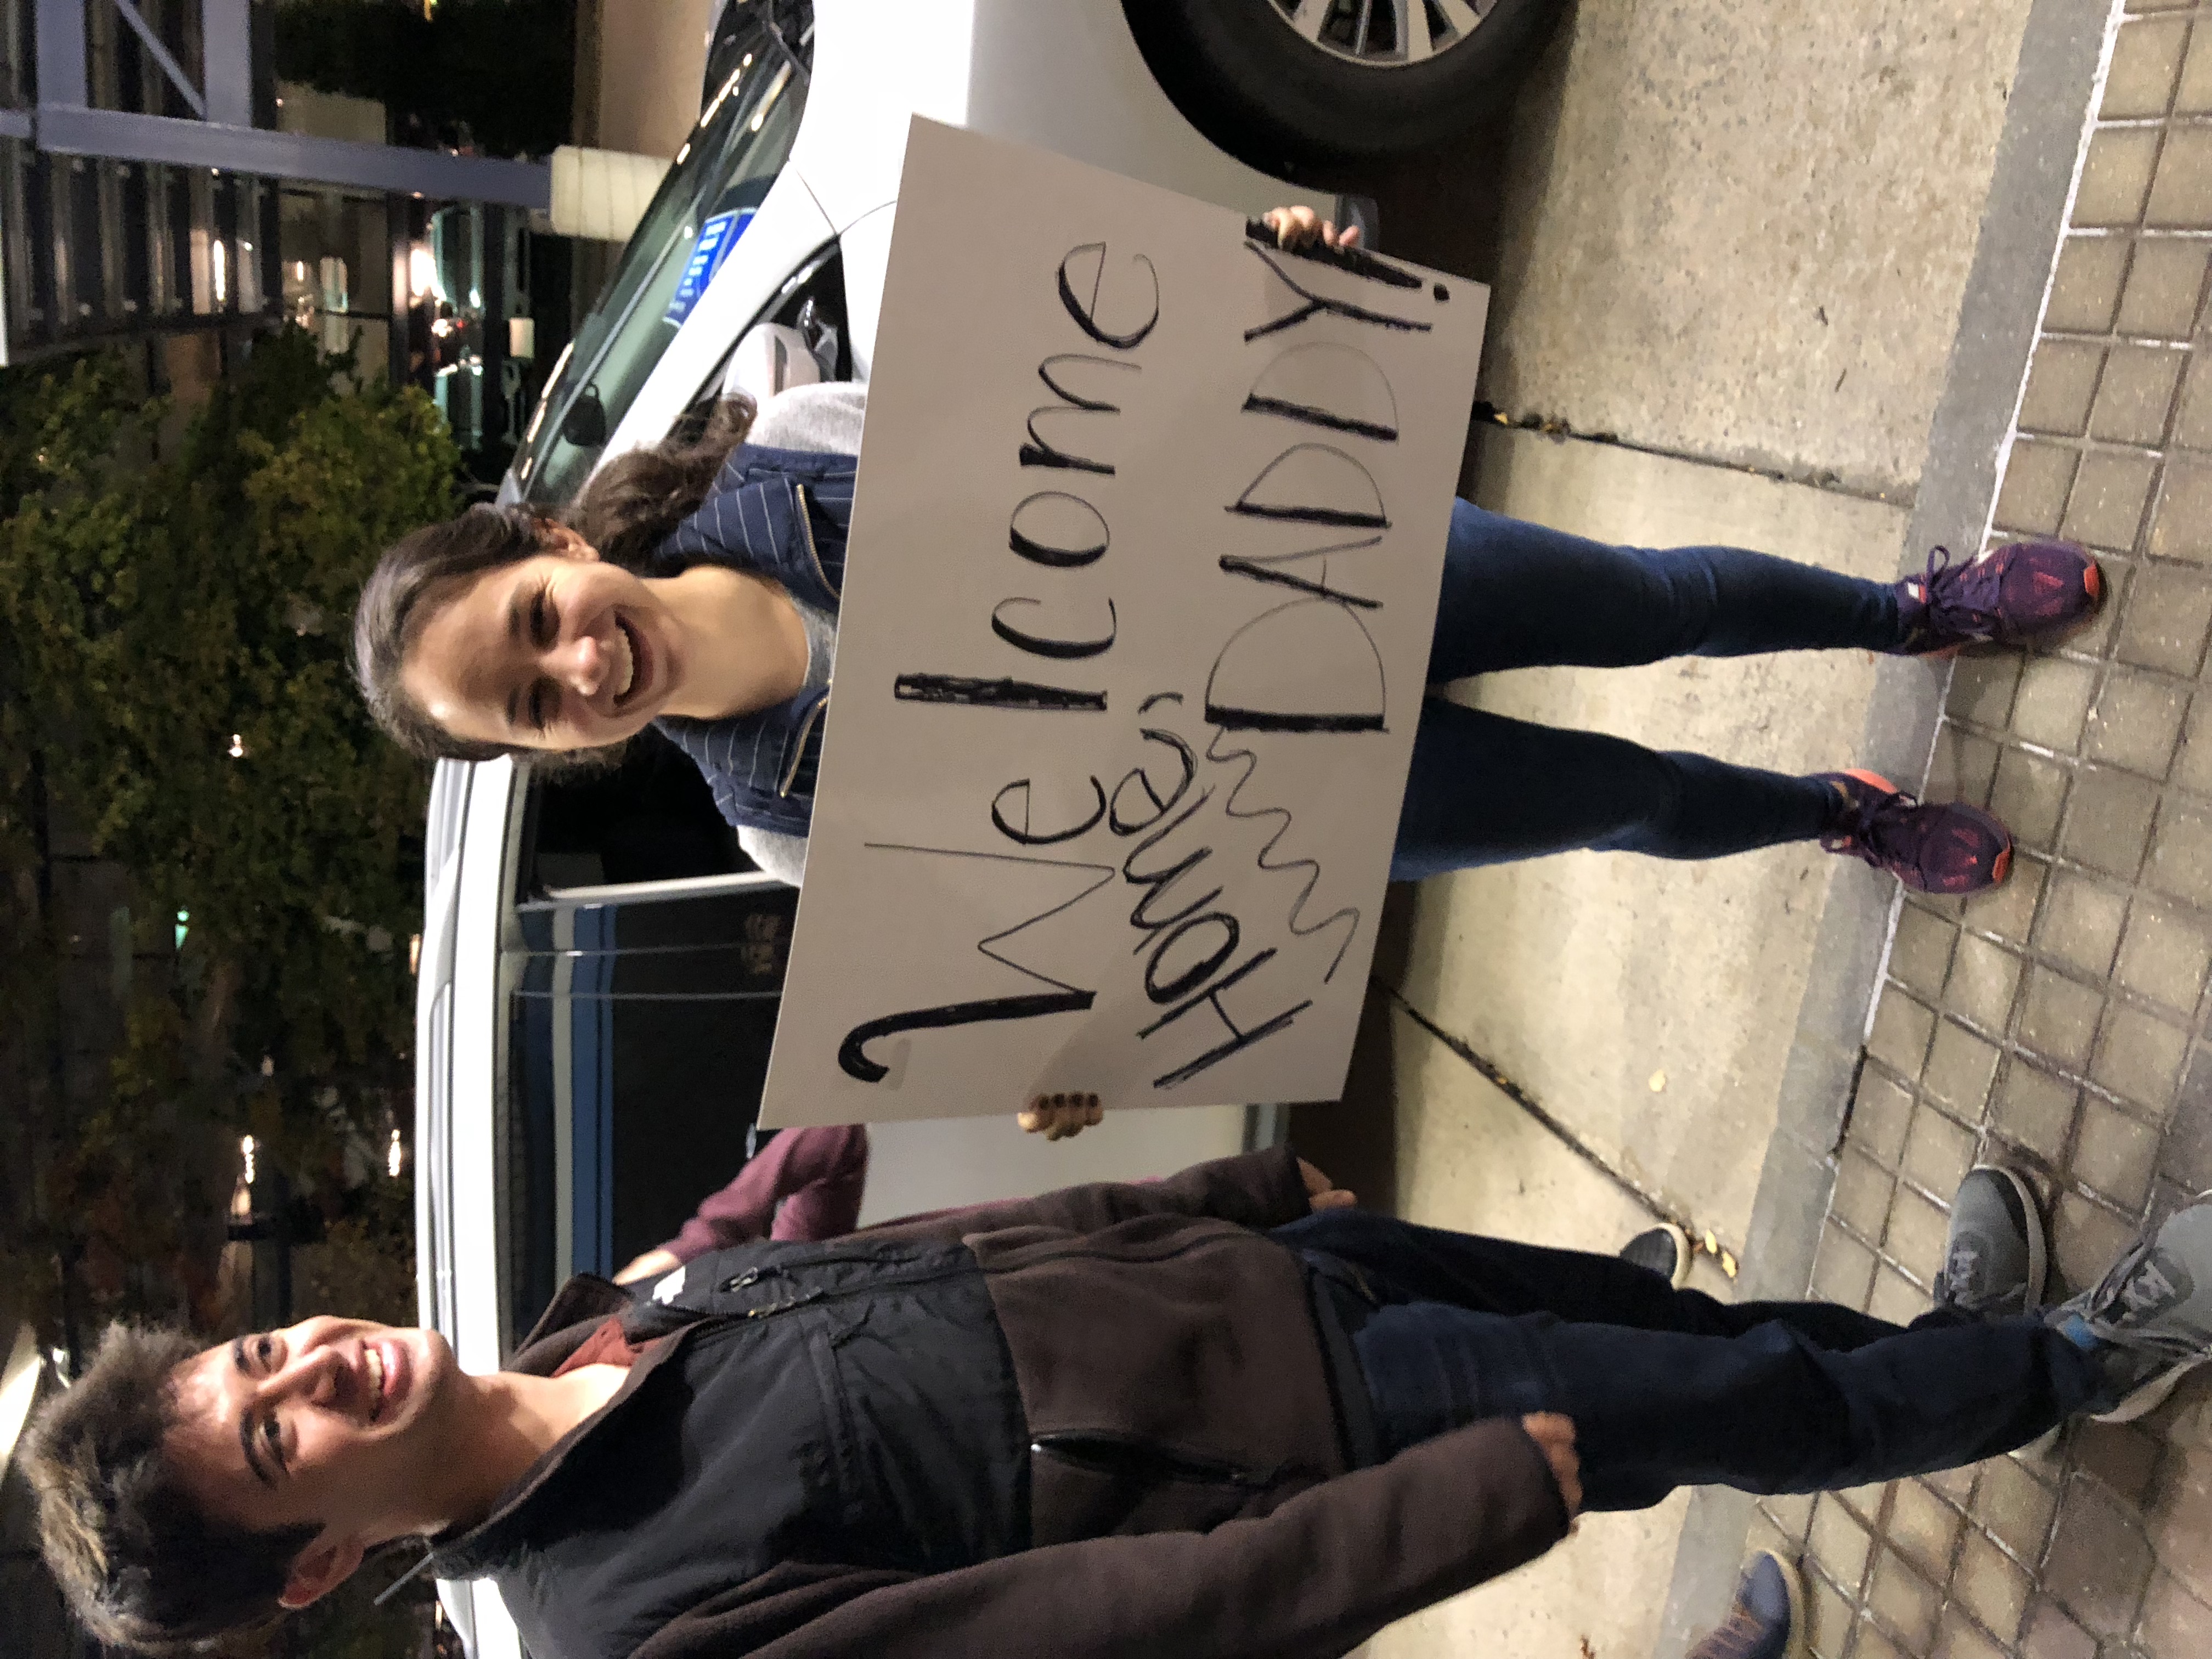 Welcome
Home,
DADDY!